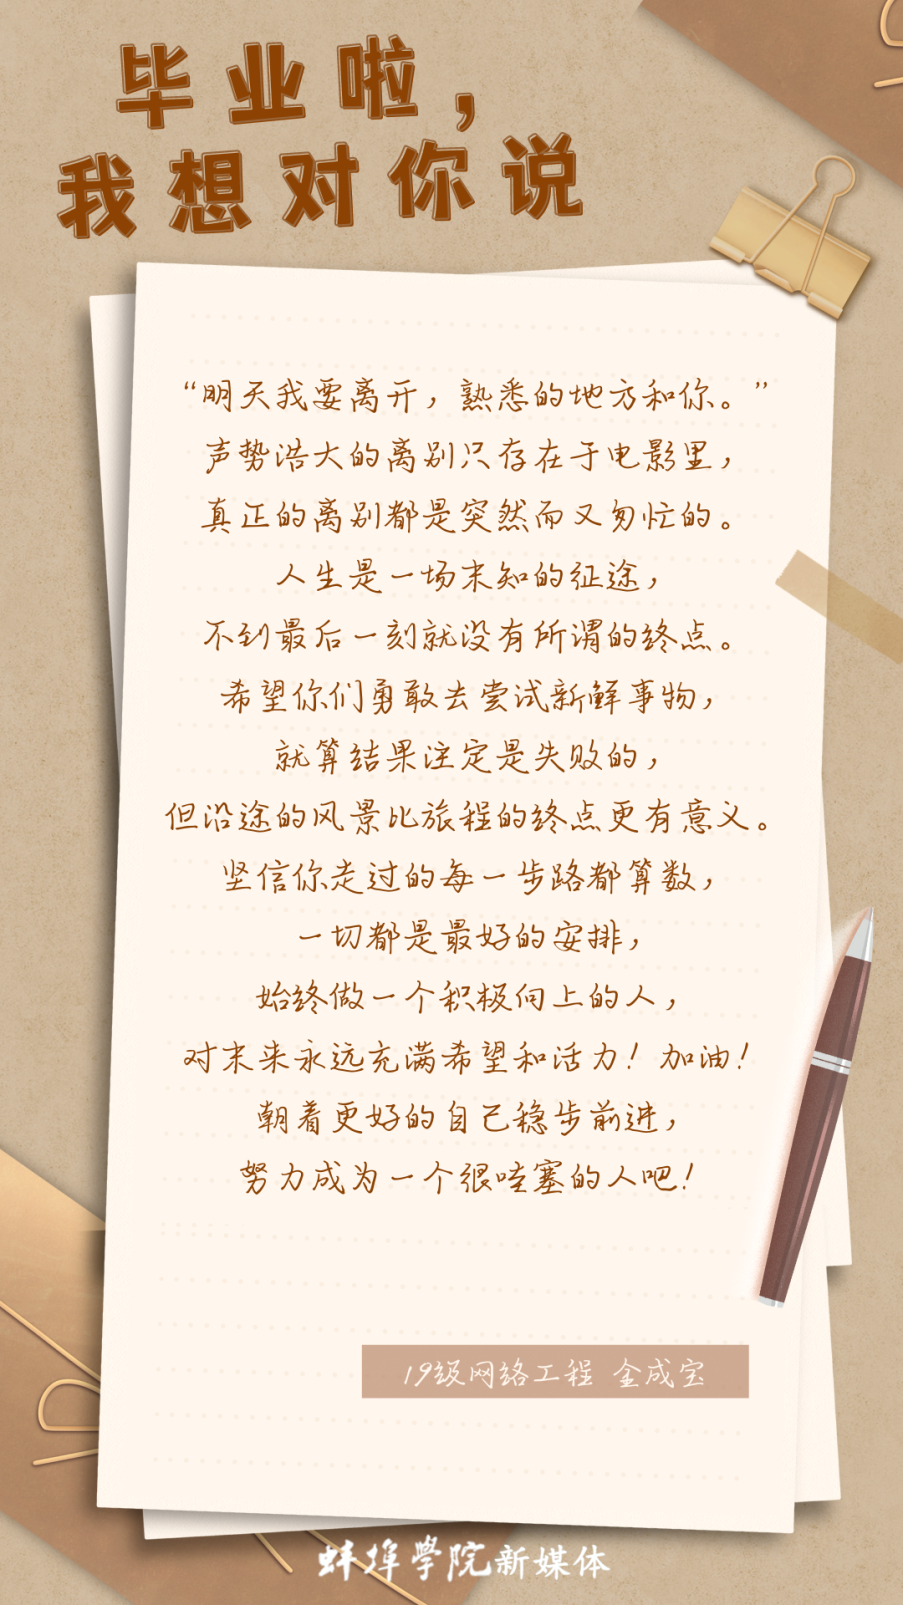 毕业啦，
我想对你说
“明天我要离开，熟悉的地方和你。”
声势浩大的离别只存在于电影里，
真正的离别都是突然而又匆忙的。
人生是一场未知的征途，
不到最后一刻就没有所谓的终点。
希望你们勇敢去尝试新鲜事物，
就算结果注定是失败的，
但沿途的风景比旅程的终点更有意义。
坚信你走过的每一步路都算数，
一切都是最好的安排，
始终做一个积极向上的人，
对未来永远充满希望和活力！加油！
朝着更好的自己稳步前进，
努力成为一个很哇塞的人吧！
19级网络工程 金成宝
蚌埠学院新媒体